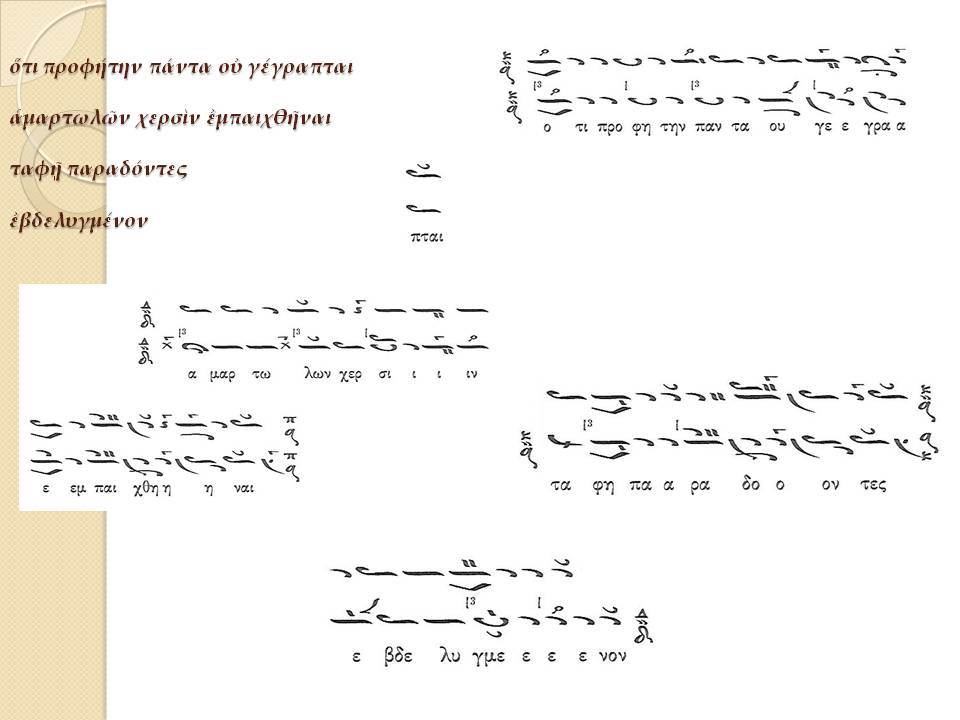 ὅτι προφήτην πάντα οὐ γέγραπται
ἁμαρτωλῶν χερσὶν ἐμπαιχθῆναι
ταφῇ παραδόντες
ἐβδελυγμένον
ο τι προ φη την παν τα ου γε ε γρα α
πται
α μαρ τω λων χερ σι ι ι ιν
ε εμ παι χθη η η ναι
τα φη πα α ρα δο ο ον τες
ε βδε λυ γμε ε ε ε νον